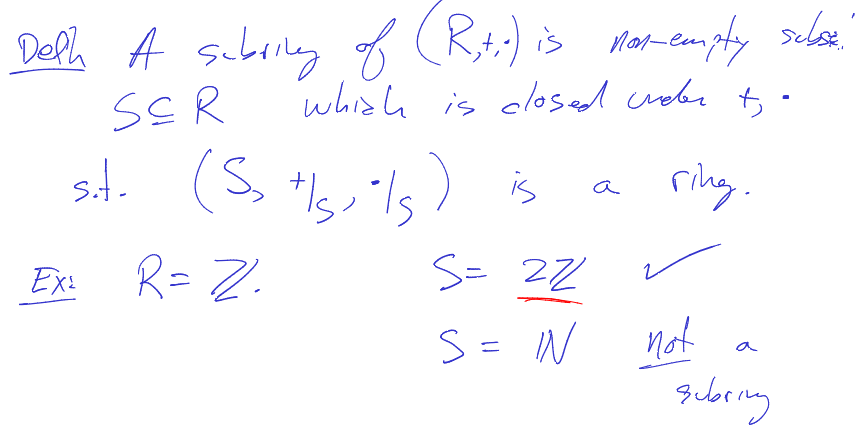 Defn A subring of (R,+,·) is non-empty subset
S⊆R which is closed under +, ·
s.t. (S, +|s, ·|s) is a ring.
Ex: R = ℤ. S = 2ℤ ✓
S = ℕ not a
subring